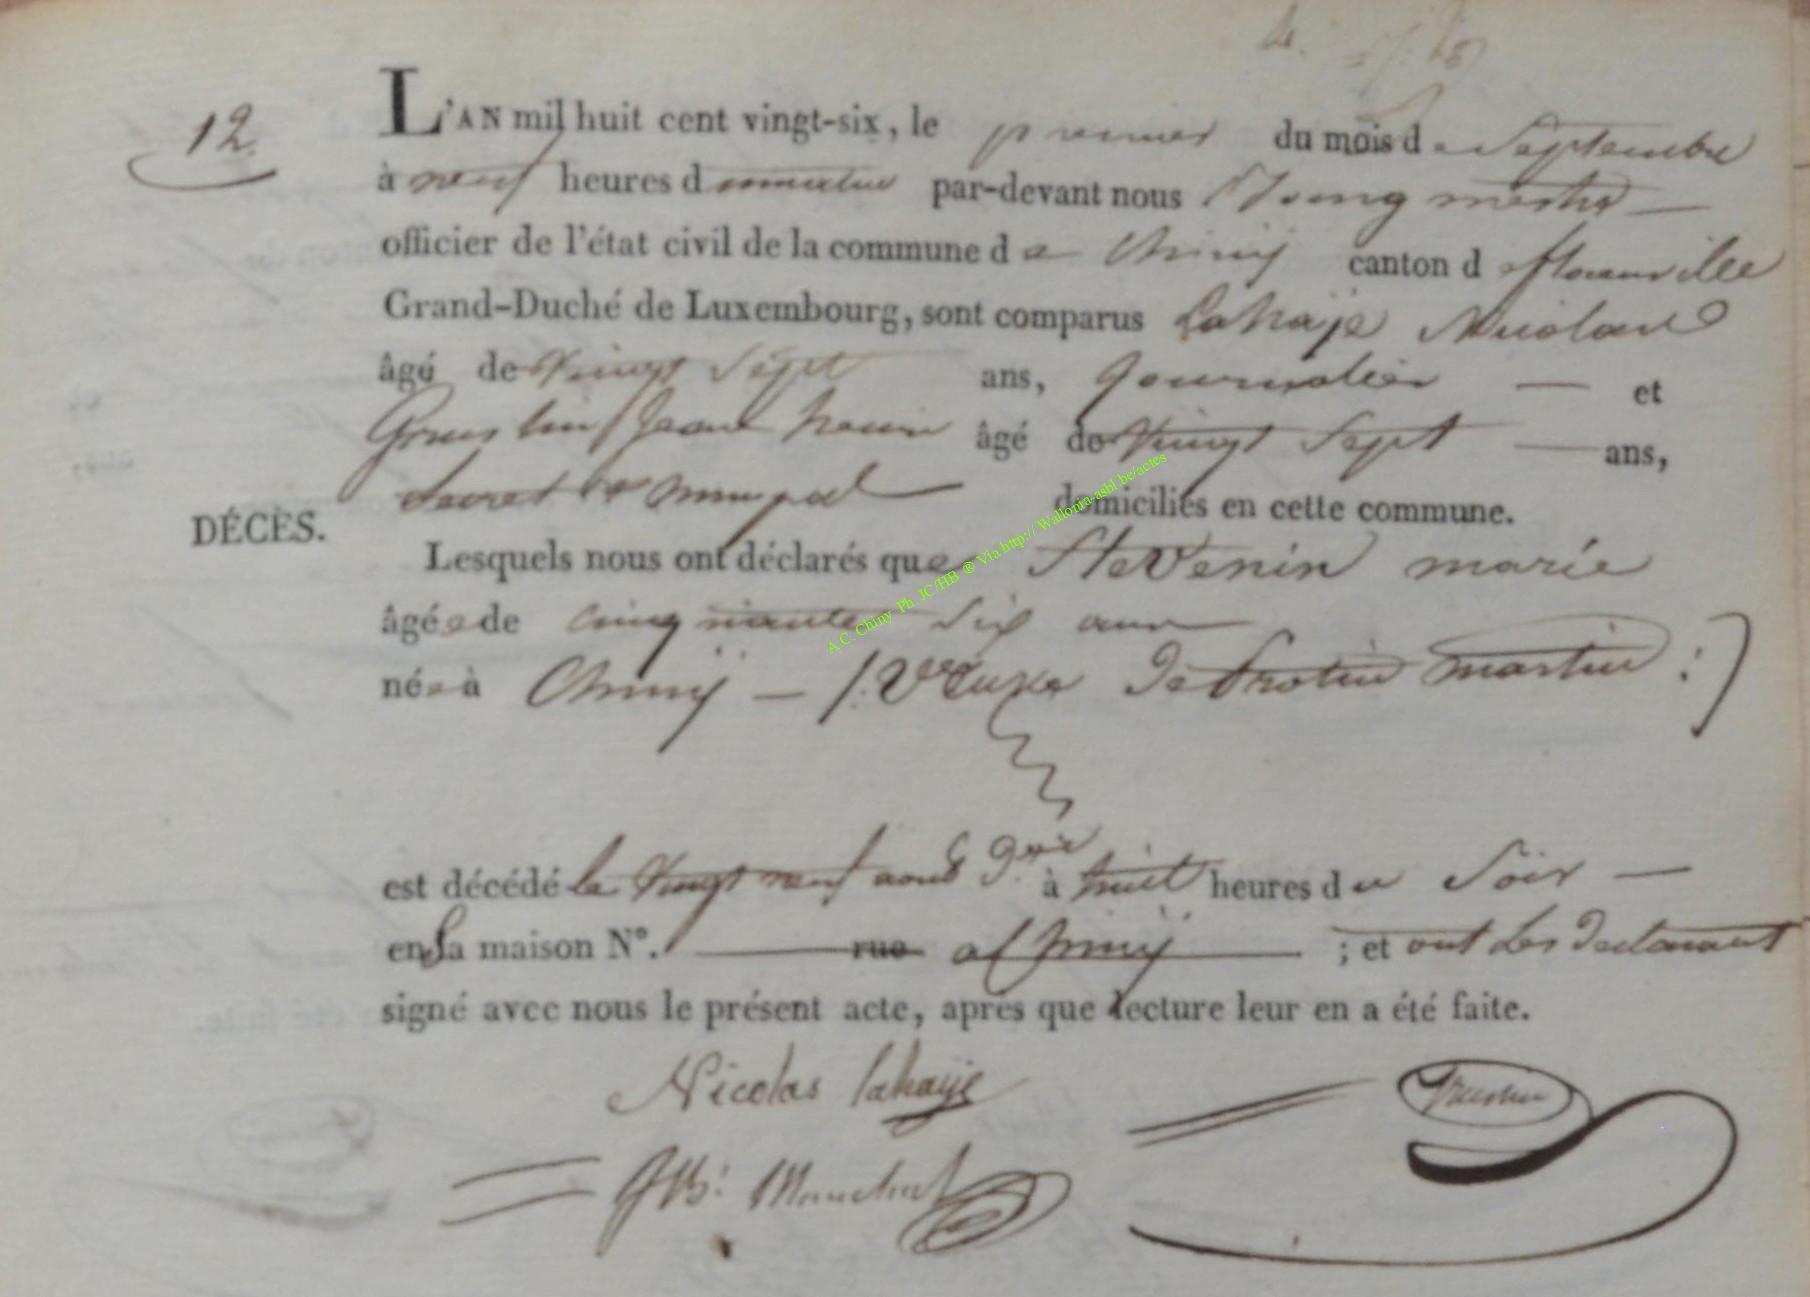 12.
L'AN mil huit cent vingt-six, le premier du mois de Septembre
à neuf heures du matin par-devant nous Bourg mestre
officier de l'état civil de la commune de Chiny canton de florenville
Grand-Duché de Luxembourg, sont comparus Lahaÿe Nicolas
âgé de Vingt Sept ans, Journalier et
Jean henri âgé de Vingt Sept ans,
domiciliés en cette commune.
DÉCÈS.
Lesquels nous ont déclarés que SteVenin marie
âgée de cinq uante Six ans
née à Chinÿ /: Veuve De Protin martin :/
est décédé le Vingt neuf aout Dnier à huit heures du Soir
en Sa maison N°. rue a Chinÿ ; et ont Les Declarant
signé avec nous le présent acte, après que lecture leur en a été faite.
Nicolas lahaÿe
JB: Manchat
A.C. Chiny Ph JC/HB ® Via http:// Wallonia-asbl.be/actes